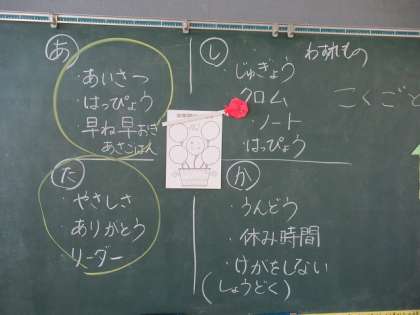 あ
・あいさつ
・はっぴょう
・早ね早おき
あさごはん
し
わすれもの
・じゅぎょう
クロム
ノート
・はっぴょう
こくご
た
・やさしさ
・ありがとう
・リーダー
か
・うんどう
・休み時間
・けがをしない
(しょうどく)